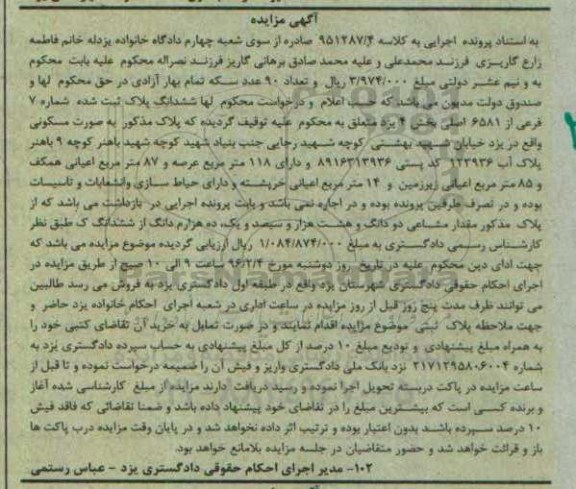 آگهی مزایده
به استناد پرونده اجرایی به کلاسه ۹۵۱۲۸۷/۴ صادره از سوی شعبه چهارم دادگاه خانواده یزدله خانم فاطمه
زارع گاریزی فرزند محمدعلی و علیه محمد صادق برهانی گاریز فرزند نصراله محکوم علیه بابت محکوم
به و نیم عشر دولتی مبلغ ۳/۹۷۴/۰۰۰ ریال و تعداد ۹۰ عدد سکه تمام بهار آزادی در حق محکوم لها و
صندوق دولت مدیون می باشد که حسب اعلام و درخواست محکوم لها ششدانگ پلاک ثبت شده شماره ۷
فرعی از ۶۵۸۱ اصلی بخش ۴ یزد متعلق به محکوم علیه توقیف گردیده که پلاک مذکور به صورت مسکونی
واقع در یزد خیابان شهید بهشتی کوچه شهید رجایی جنب بنیاد شهید کوچه شهید باهنر کوچه ۹ باهنر
پلاک آب ۱۲۳۹۳۶ کد پستی ۸۹۱۶۳۱۳۹۳۶ و دارای ۱۱۸ متر مربع عرصه و ۸۷ متر مربع اعیانی همکف
و ۸۵ متر مربع اعیانی زیرزمین و ۱۴ متر مربع اعیانی خرپشته و دارای حیاط سازی وانشعابات و تاسیسات
بوده و در تصرف طرفین پرونده بوده و در اجاره نمی باشد و بابت پرونده اجرایی در بازداشت می باشد که از
پلاک مذکور مقدار مشاعی دو دانگ و هشت هزار و سیصد و یک، ده هزارم دانگ از ششدانگ که طبق نظر
کارشناس رسمی دادگستری به مبلغ ۱/۰۸۴/۸۷۴/۰۰۰ ریال ارزیابی گردیده موضوع مزایده می باشد که
جهت ادای دین محکوم علیه در تاریخ روز دوشنبه مورخ ۹۶/۲/۴ ساعت ۹ الی ۱۰ صبح از طریق مزایده در
اجرای احکام حقوقی دادگستری شهرستان یزد واقع در طبقه اول دادگستری یزد به فروش می رسد طالبین
می توانند ظرف مدت پنج روز قبل از روز مزایده در ساعت اداری در شعبه اجرای احکام خانواده یزد حاضر و
جهت ملاحظه پلاک ثبتی موضوع مزایده اقدام نمایند و در صورت تمایل به خرید آن تقاضای کتبی خود را
به همراه مبلغ پیشنهادی و تودیع مبلغ ۱۰ درصد از کل مبلغ پیشنهادی به حساب سپرده دادگستری یزد به
شماره ۲۱۷۱۲۹۵۸۰۶۰۰۴ نزد بانک ملی دادگستری واریز و فیش آن را ضمیمه درخواست نموده و تا قبل از
ساعت مزایده در پاکت دربسته تحویل اجرا نموده و رسید دریافت دارند مزایده از مبلغ کارشناسی شده آغاز
و برنده کسی است که بیشترین مبلغ را در تقاضای خود پیشنهاد داده باشد و ضمنا تقاضائی که فاقد فیش
۱۰ درصد سپرده باشد بدون اعتبار بوده و ترتیب اثر داده نخواهد شد و در پایان وقت مزایده درب پاکت ها
باز و قرائت خواهد شد و حضور متقاضیان در جلسه مزایده بلامانع خواهد بود.
۱۰۲- مدیر اجرای احکام حقوقی دادگستری یزد - عباس رستمی